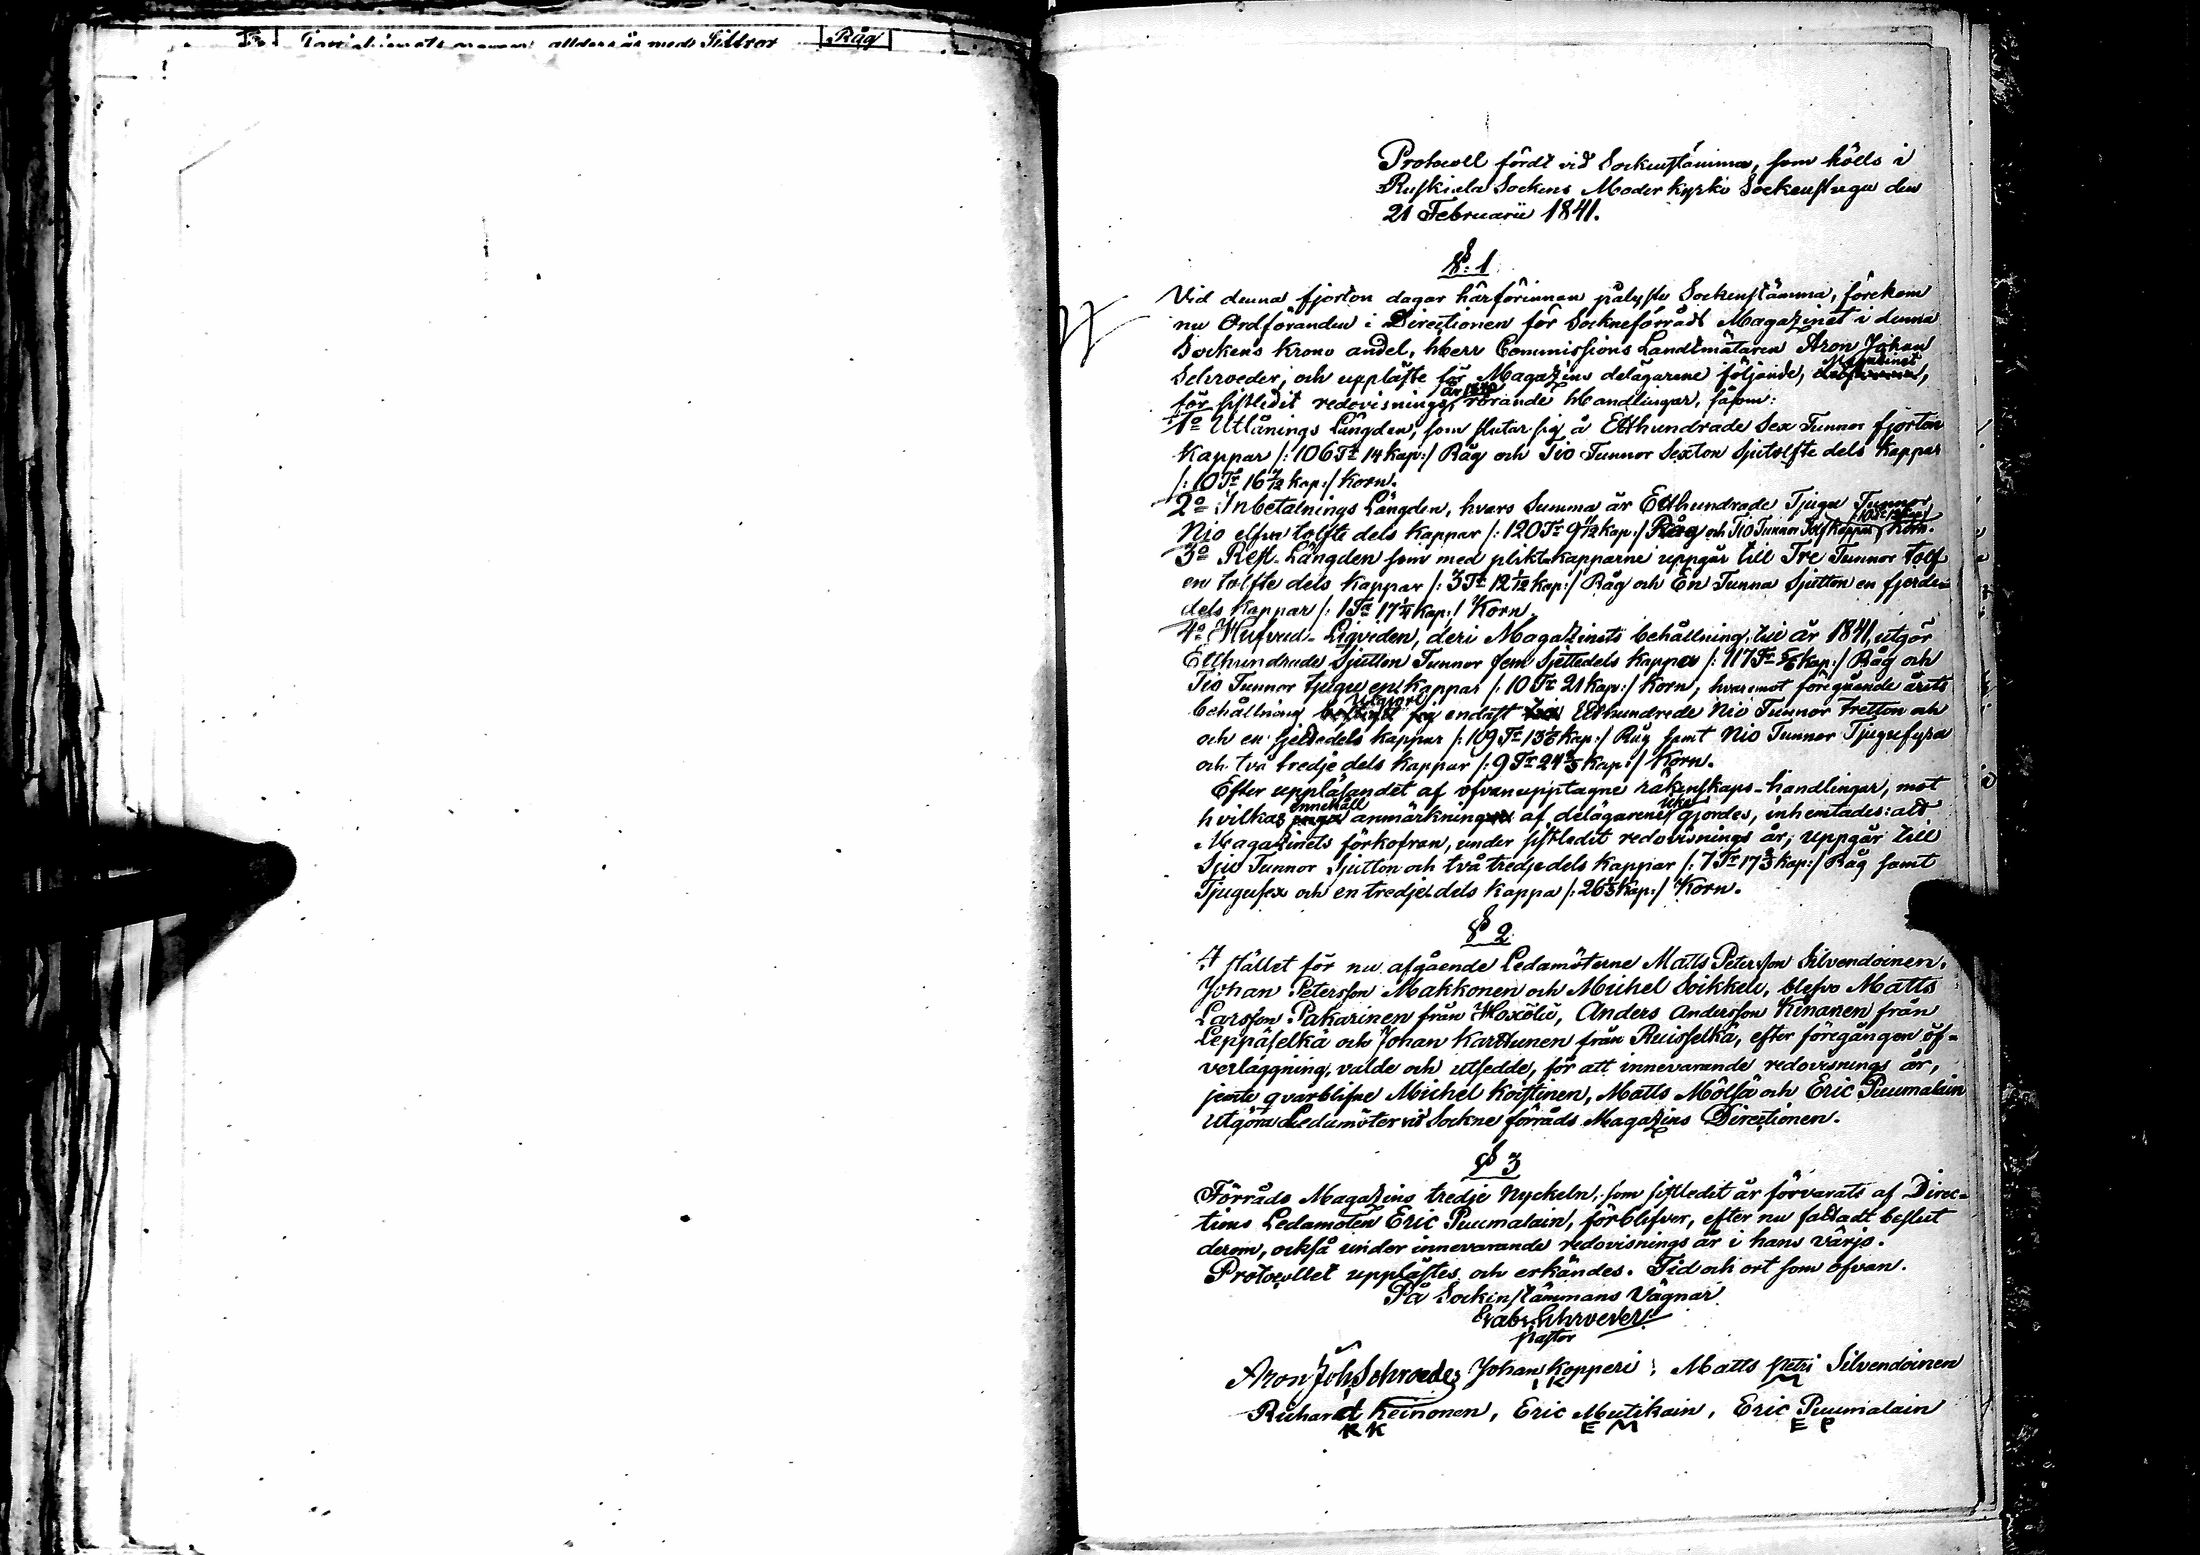 Råg
Protocoll fördt vid Sockenstämma, som hölls i
Ruskiala Sockens Moderkyrko Sockenstuga den
21 Februarii 1841.
§. 1
Vid denna fjorton dagar härförinnan pålyste Sockenstämma, förekom
nu Ordföranden i Directionen för Sockneförråds Magazinet i denna
Sockens Krono andel, Herr Commissions Landtmätaren Aron Johan
Schroeder, och uppläste för Magazins delägarene följande, Magazinet,
för sistledit redovisnings år 1840 rörande Handlingar, såsom:
1o Utlånings Längden, som slutar sig å Etthundrade Sex Tunnor fjorton
Kappar /: 106 Tr 14 kap:/ Råg och Tio Tunnor Sexton sjutolfte dels Kappar
/: 10 Tr 16 7/12 kap:/ Korn.
2o Inbetalnings Längden, hvars Summa är Etthundrade Tjugu Tunnor
Nio elfva tolfte dels Kappar /: 120 Tr 9 11/12 kap:/ Råg och Tio Tunnor Tolf Kappar Korn.
3o Rest-Längden som med plikt-kapparne uppgår till Tre Tunnor tolf
en tolfte dels Kappar /: 3 Tr 12 1/12 kap:/ Råg och En Tunna Sjutton en fjerde-
dels Kappar /: 1 Ta 17 1/4 kap:/ Korn.
4o Hufvud-Liqviden, deri Magazinets behållning till år 1841, utgör
Etthundrade Sjutton Tunnor fem Sjettedels Kappa /: 117 Tr 5/6 kap:/ Råg och
Tio Tunnor tjugu en Kappar /: 10 Tr 21 kap:/ Korn, hvaremot föregående årets
behållning utgjort endast Etthundrade Nio Tunnor tretton och
och en sjettedels Kappar /: 109 Tr 13 1/6 kap:/ Råg samt Nio Tunnor Tjugufyra
och två tredje dels Kappar /: 9 Tr 24 2/3 kap:/ Korn.
Efter uppläsandet af ofvanupptagne räkenskaps-handlingar, mot
hvilkas innehåll anmärkning af delägarene icke gjordes, inhemtades: att
Magazinets förkofran, under sistledit redovisnings år, uppgår till
Sju Tunnor Sjutton och två tredjedels Kappar /: 7 Tr 17 2/3 kap:/ Råg samt
Tjugusex och en tredje dels Kappa /: 26 1/3 kap:/ Korn.
§ 2
I stället för nu afgående Ledamöterne Matts Petersson Silvendoinen,
Johan Petersson Makkonen och Michel Soikkeli, blefvo Matts
Larsson Pakarinen från Hoxölü, Anders Andersson Kinanen från
Leppäselkä och Johan Karttunen från Ruisselkä, efter föregången öf-
verläggning, valde och utsedde, för att innevarande redovisnings år,
jemte qvarblifne Michel Koistinen, Matts Mölsä och Eric Puumalain
utgöra Ledamöter vid Sockne förråds Magazins Directionen.
§ 3
Förråds Magazins tredje Nyckeln, som sistledit år förvarats af Direc-
tions Ledamoten Eric Puumalain, förblifver, efter nu fattadt beslut
derom, också under innevarande redovisnings år i hans värjo.
Protocollet upplästes och erkändes. Tid och ort som ofvan.
På Sockenstämmans Vägnar
Gabr. Schroeder
pastor
Aron Joh. Schroeder Johan Kopperi, Matts Petri Silvendoinen
I K M
Richard Keinonen, Eric Mutikain, Eric Puumalain
R K E M E P